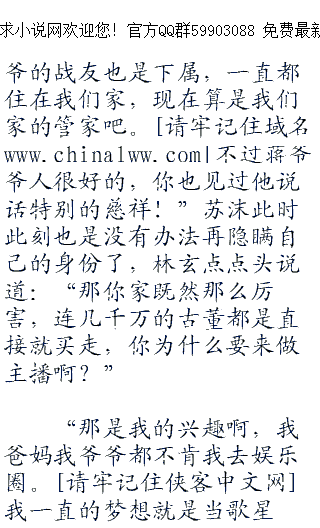 求小说网欢迎您！官方QQ群59903088 免费最新
爷的战友也是下属，一直都
住在我们家，现在算是我们
家的管家吧。[请牢记住域名
www.china1ww.com|不过蒋爷
爷人很好的，你也见过他说
话特别的慈祥！”苏沫此时
此刻也是没有办法再隐瞒自
己的身份了，林玄点点头说
道：“那你家既然那么厉
害，连几千万的古董都是直
接就买走，你为什么要来做
主播啊？”
“那是我的兴趣啊，我
爸妈我爷爷都不肯我去娱乐
圈。[请牢记住侠客中文网]
我一直的梦想就是当歌星